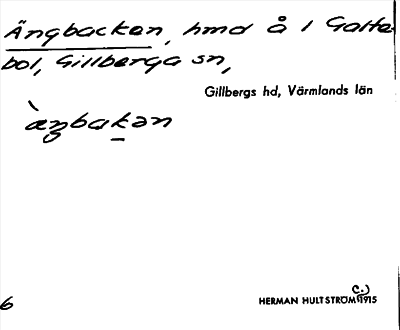 Ängbacken, hmd å 1 Gatte-
bol, Gillberga sn,
Gillbergs hd, Värmlands län
æŋbakən
6
HERMAN HULTSTRÖM (c.) 1915